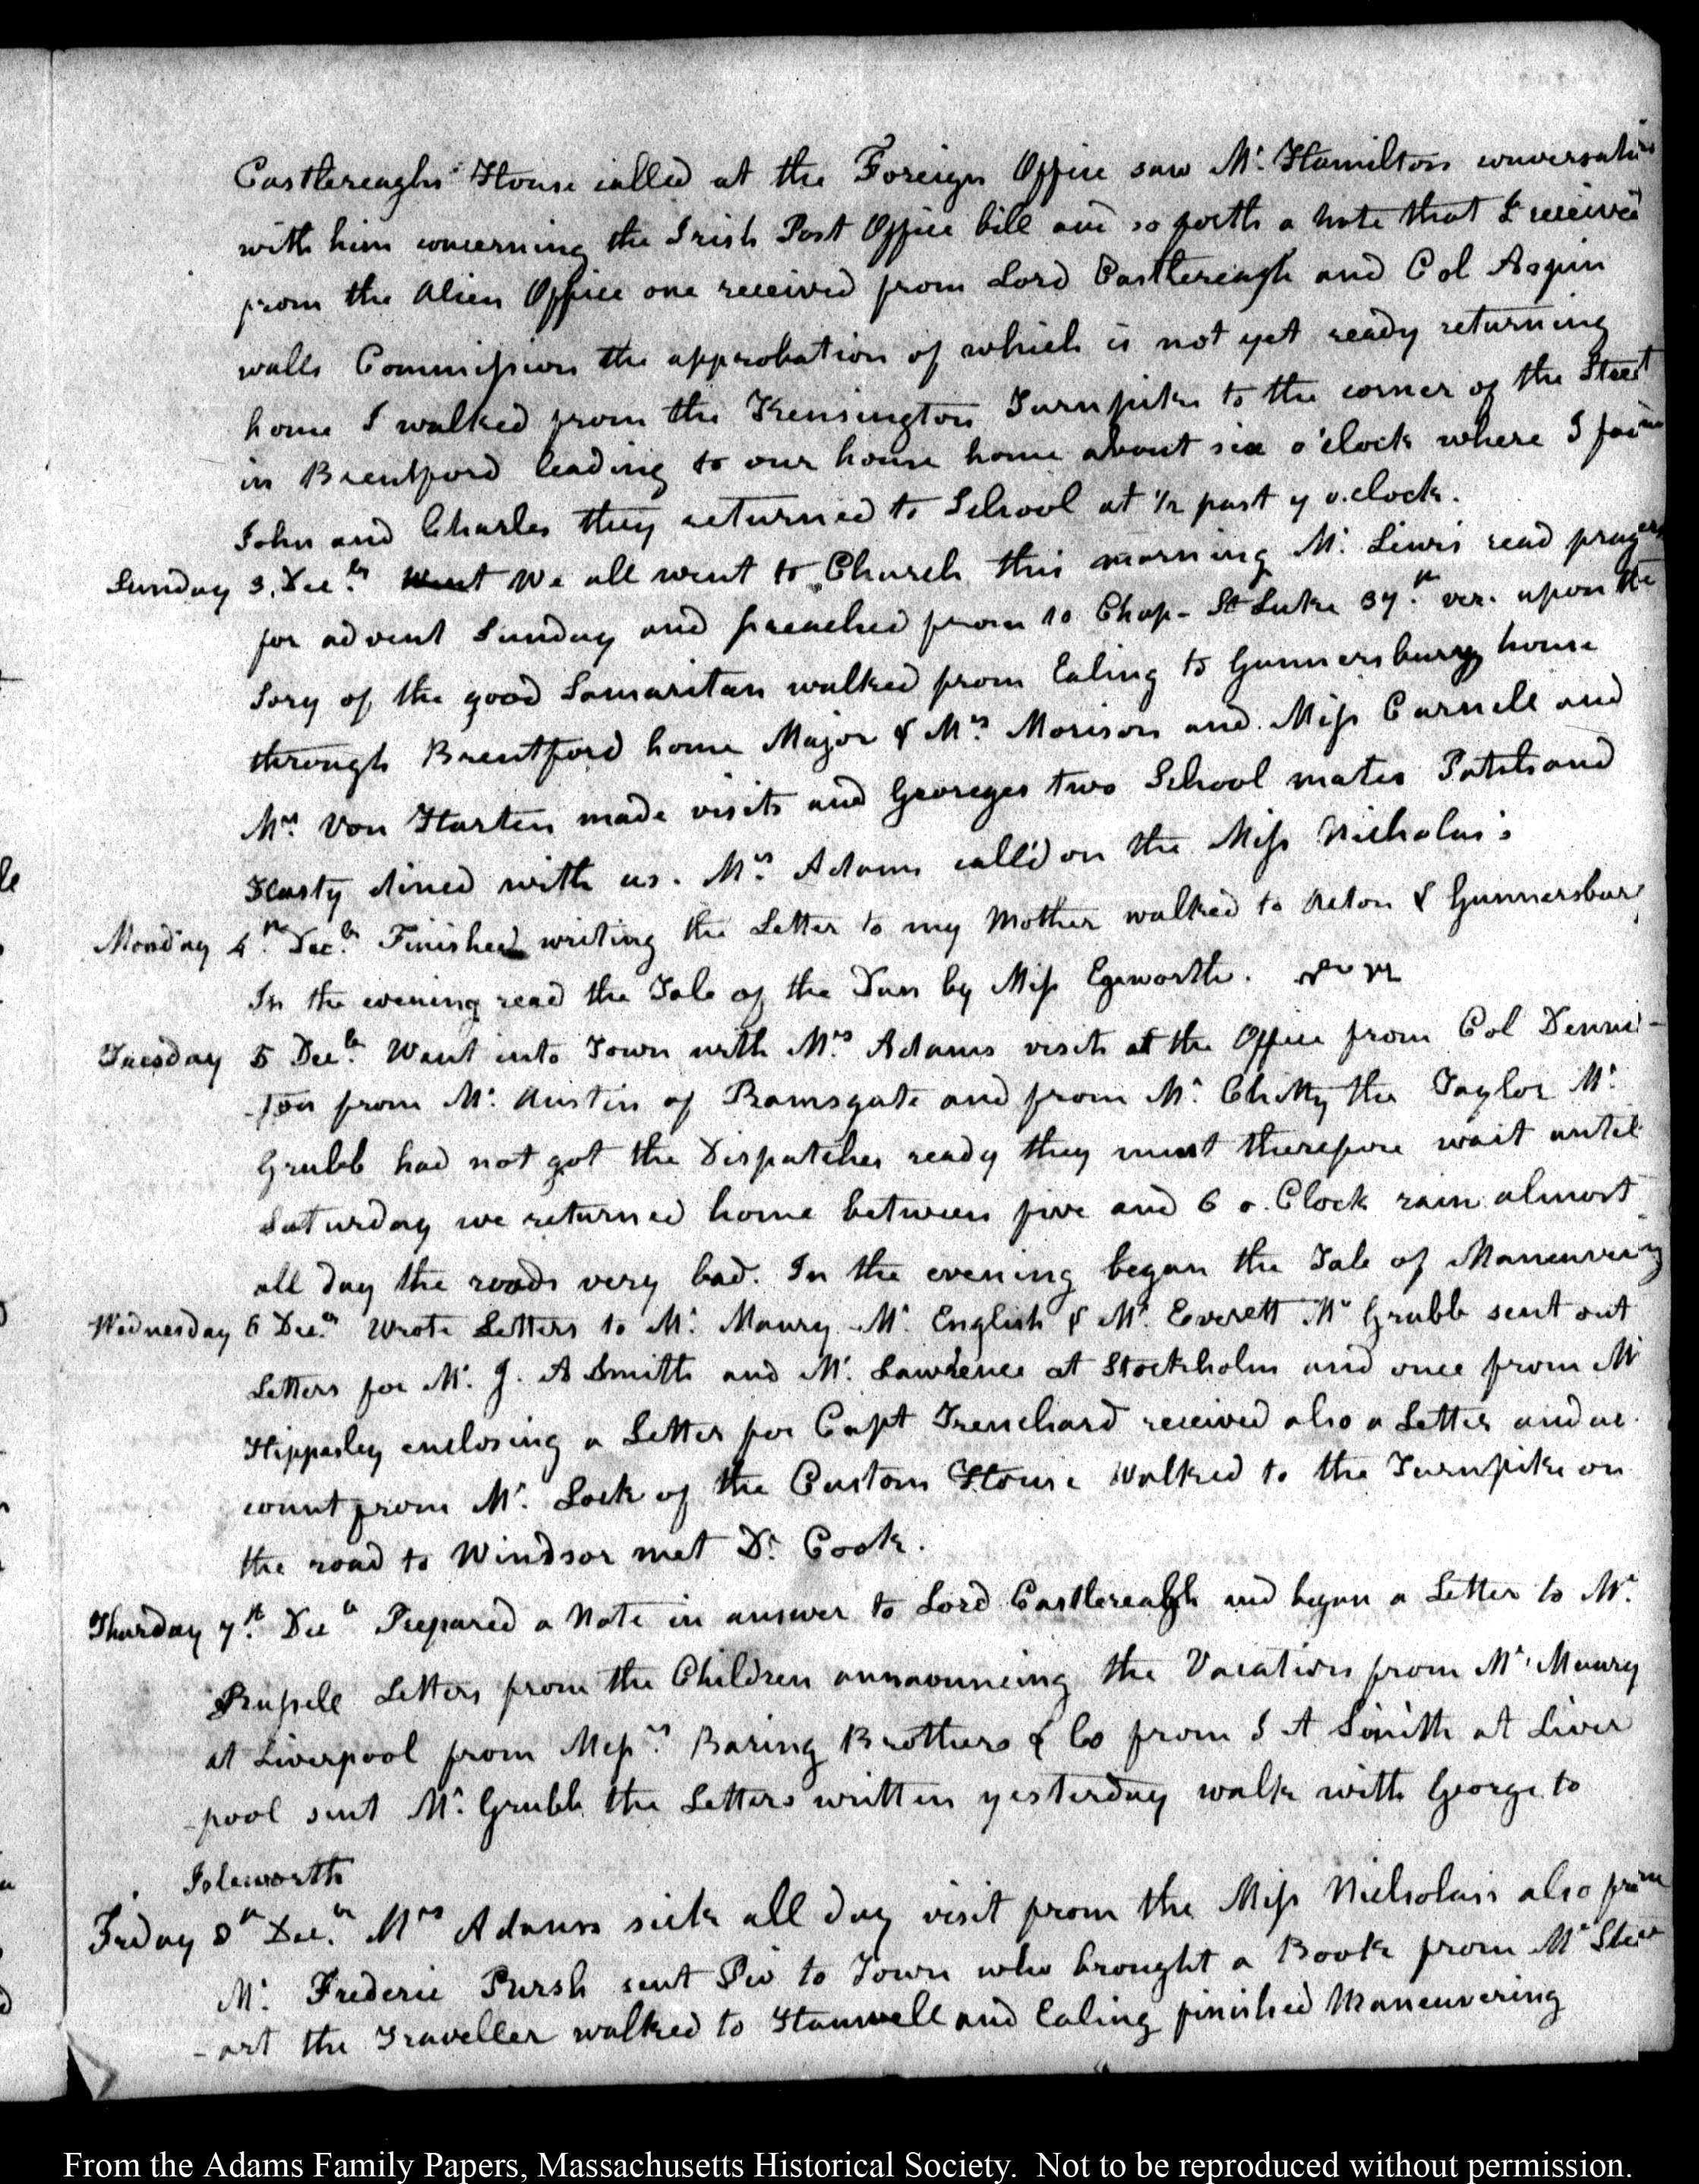 Castlereaghs House called at the Foreign Office saw Mr. Hamilton conversation
with him concerning the Irish Post Office bill and so forth a note that I received
from the Alien Office one received from Lord Castlereagh and Col Aspin
walls Commission the approbation of which is not yet ready returning
home I walked from the Kensington Turnpike to the corner of the Steet
in Brentford leading to our house home about six o'clock where I
John and Charles they returned to School at 1/2 past 7 o.clock.
Sunday 3. Decbr. Went We all went to Church this morning Mr. Lewis read prayers
for advent Sunday and preached from 10 Chap- St Luke 37.th ver. upon the
Sory of the good Samaritan walked from Ealing to Gunnersburry house
through Brentford home Major & Mrs. Morison and Miss Carnell and
Mrs. Von Harten made visits and Georeges two School mates and
dined with us. Mrs. Adams call'd on the Miss Nicholas's
Monday 4.th Decbr. Finished writing the Letter to my Mother walked to Acton & Gunnersbury
In the evening read the Tale of the Dun by Miss Egeworth.
Tuesday 5 Decbr. Want into Town with Mrs. Adams visits at the Office from Col Denni-
-son from Mr. Austin of Ramsgate and from Mr. Chitty the Taylor Mr.
Grubb had not got the Dispatches ready they must therefore wait until
Saturday we returned home between five and 6 o.Clock rain almost
all day the roads very bad. In the evening began the Tale of Maneuvering
Wednesday 6 Decbr. Wrote Letters to Mr. Maury Mr. English & Mr. Everett Mr Grubb sent out
Letters for Mr. J. A Smith and Mr. Lawrence at Stockholm and once from Mr
Hippasley enclosing a Letter for Capt Trenchard received also a Letter and ac
count from Mr. Lock of the Custom House Walked to the Turnpike on
the road to Windsor met Dr. Cook.
Thurday 7.th Decbr Prepared a Note in answer to Lord Castlereagh and began a Letter to Mr.
Russell Letters from the Children annaouncing the Vacation from Mr. Maury
at Liverpool from Messrs. Baring Brothers & Co from J A Smith at Liver
-pool sent Mr. Grubb the Letters written yesterday walk with George to
Isleworth
Friday 8th Decbr. Mrs Adams sick all day visit from the Miss Nicholass also from
Mr. Frederic Pursh sent Pio to Town who brought a Book from Mr Stew
-art the Traveller walked to Hanwell and Ealing finished Maneuvering
From the Adams Family Papers, Massachusetts Historical Society. Not to be reproduced without permission.